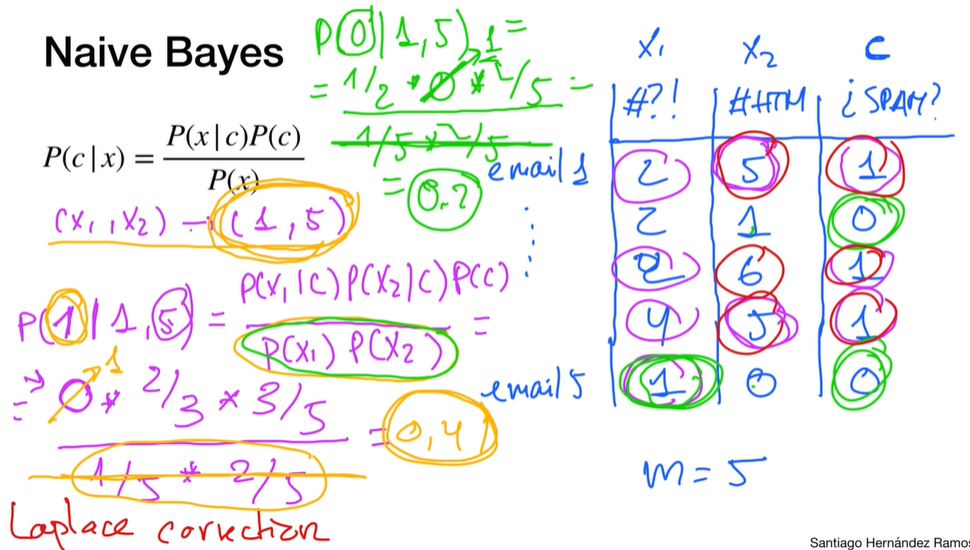 Naive Bayes
P(c|x) = P(x|c)P(c) / P(x)
(x₁, x₂) → (1, 5)
P(1 | 1, 5) = P(x₁|c) P(x₂|c) P(c) / P(x₁) P(x₂) =
= 0 → 1 * 2/3 * 3/5 / 1/5 * 2/5 = 0,4
Laplace correction
P(0|1,5) =
= 1/2 * 0 → 1 * 2/5 / 1/5 * 2/5 =
= 0,2
x₁ x₂ c
#?! #HTM ¿SPAM?
email 1 2 5 1
2 1 0
2 6 1
4 5 1
email 5 1 0 0
m = 5
Santiago Hernández Ramos